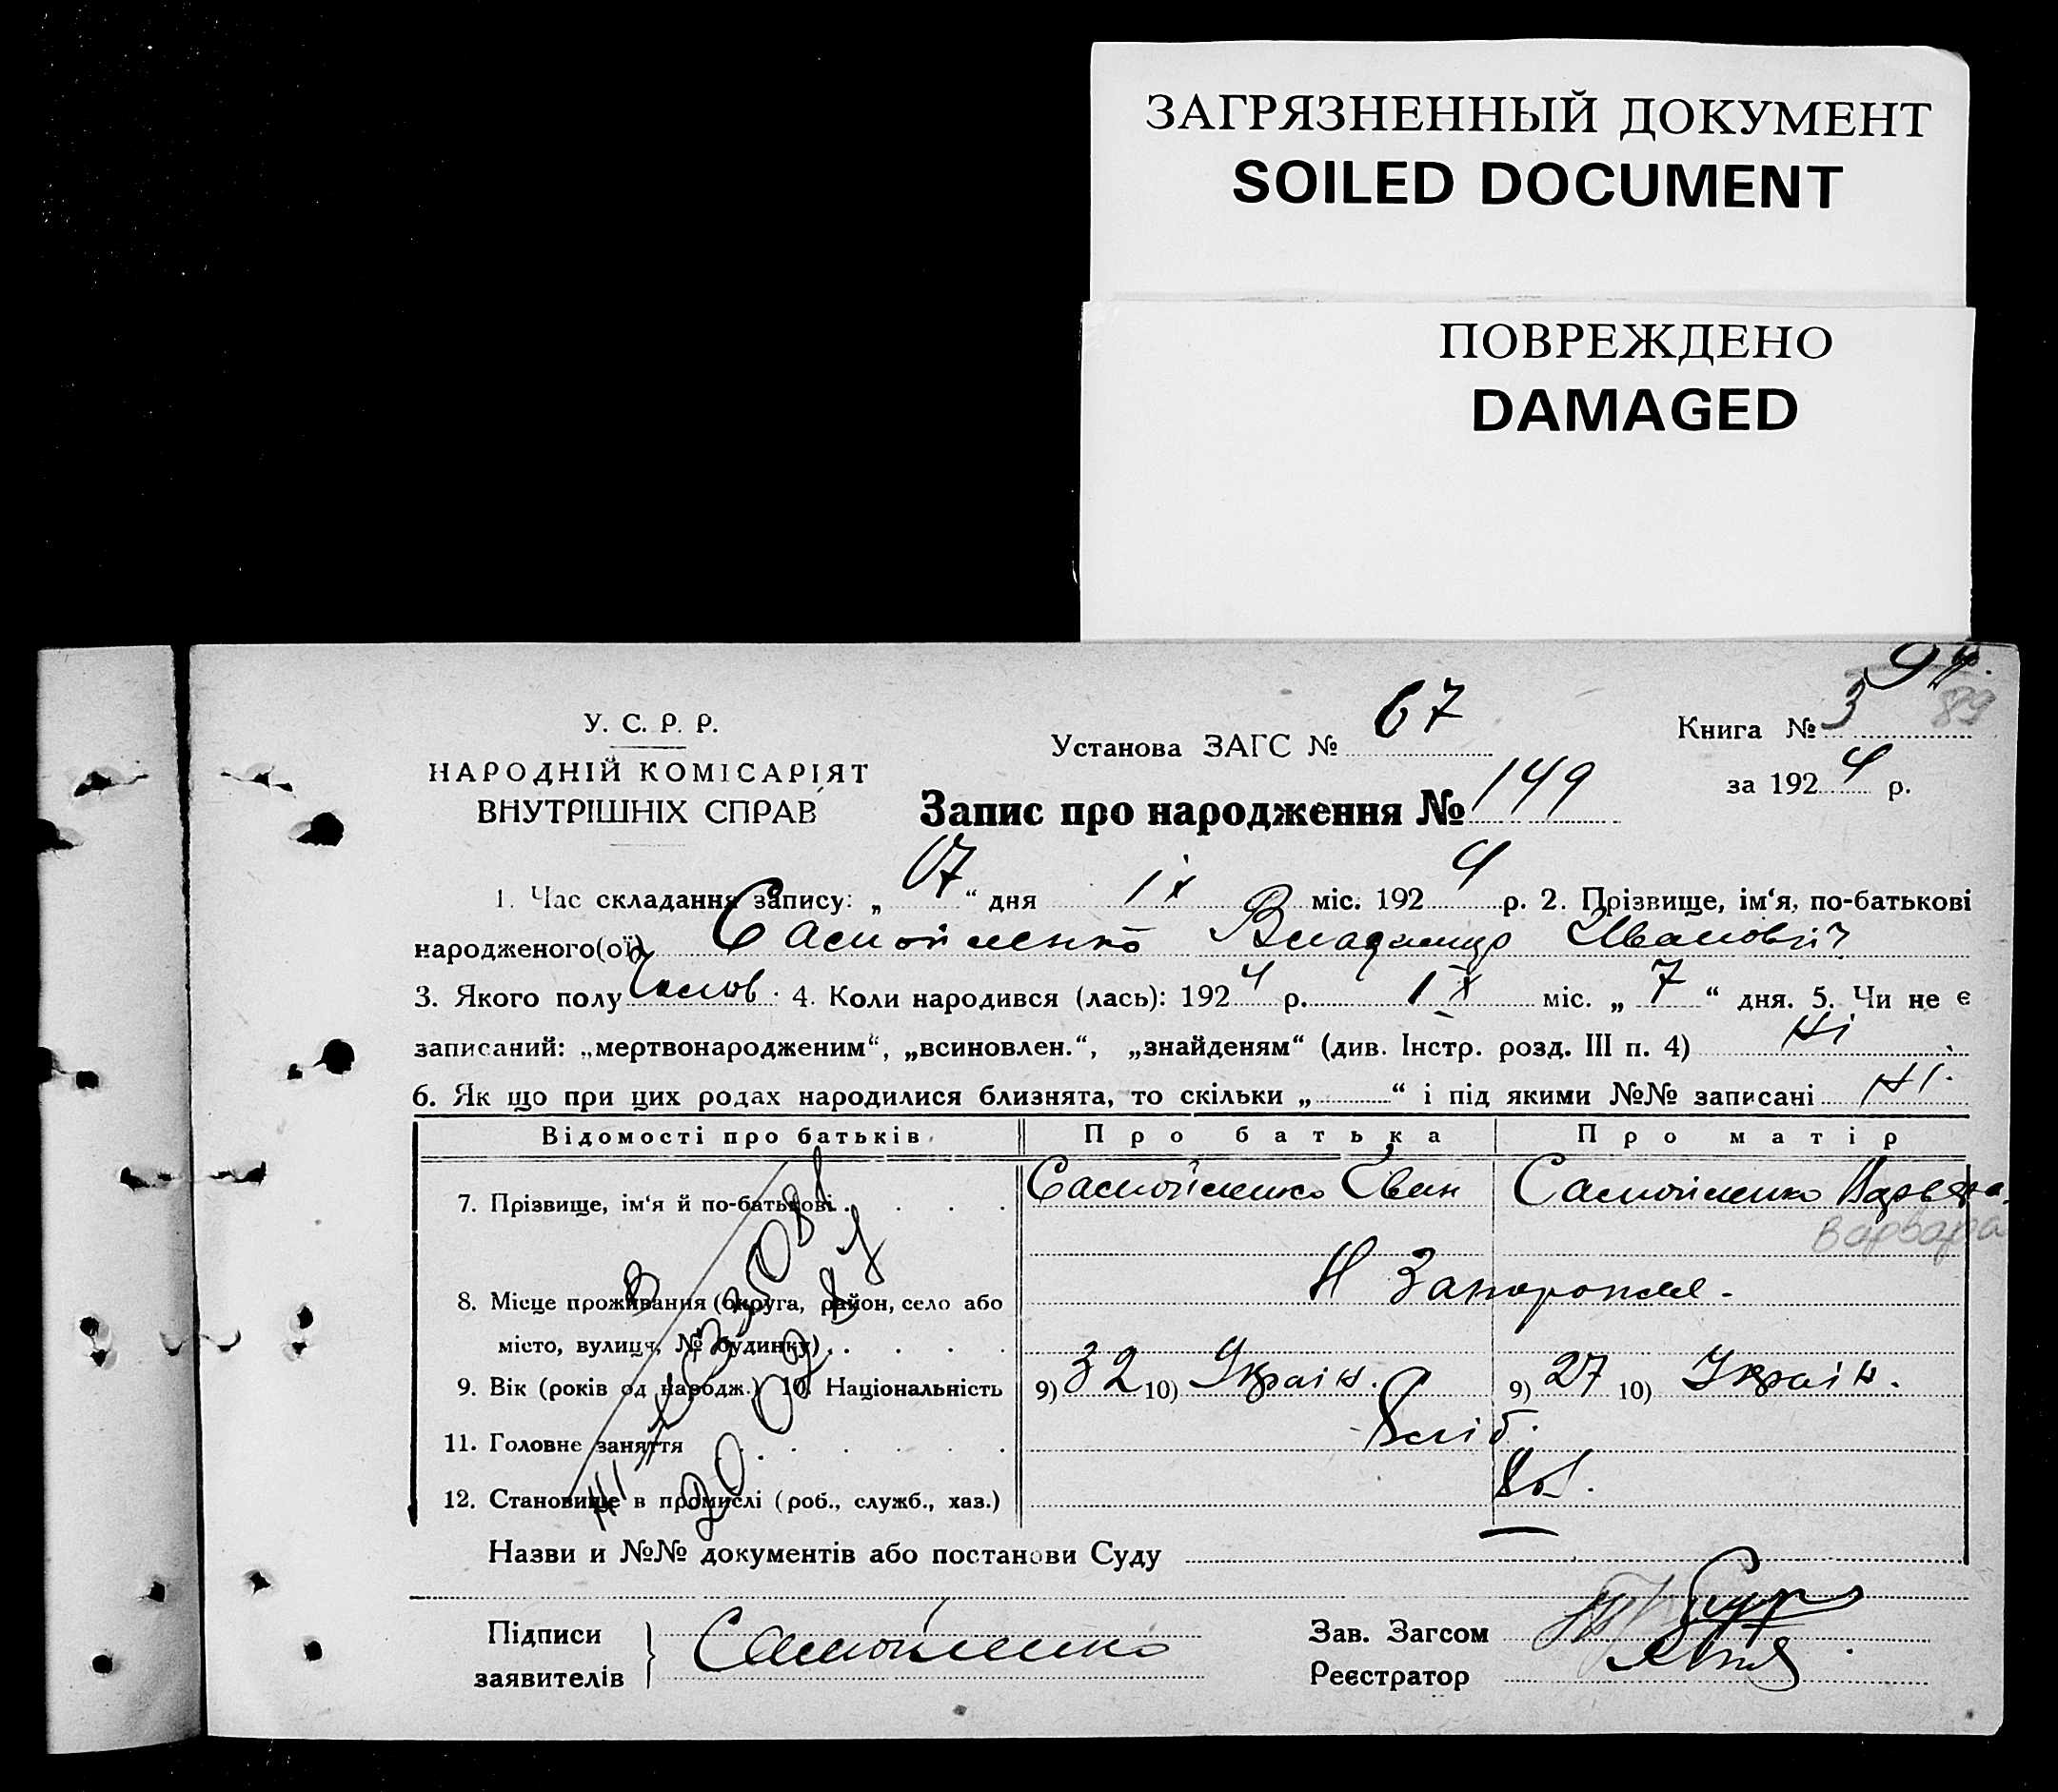 ЗАГРЯЗНЕННЫЙ ДОКУМЕНТ
SOILED DOCUMENT
ПОВРЕЖДЕНО
DAMAGED
89
У. С. Р. Р.
НАРОДНІЙ КОМІСАРІЯТ
ВНУТРІШНІХ СПРАВ
Установа ЗАГС № 67
Книга № 3
за 1924 р.
Запис про народження № 149
1. Час складання запису: „ 17 “ дня IX міс. 1924 р. 2. Прізвище, ім‘я, по-батькові
народженого(ої) Самойленко Владимир Иванович
3. Якого полу 4. Коли народився (лась): 1924 р. IX міс. „ 7 “ дня. 5. Чи не є
записаний: „мертвонародженим“, „всиновлен.“, „знайденям“ (див. Інстр. розд. III п. 4) Ні
6. Як що при цих родах народилися близнята, то скільки „ “ і під якими №№ записані Ні.
Відомості про батьків. Про батька Про матір
7. Прізвище, ім‘я й по-батькові . . . . Самойленко Іван Самойленко Варвара
Варвара
8. Місце проживання (округа, район, село або Н Запорожье.
місто, вулиця, № будинку) . . . . .
9. Вік (років од народж.) 10. Національність 9) 32 10) Україн. 9) 27 10) Україн.
11. Головне заняття . . . . . . Хліб.
12. Становище в промислі (роб., служб., хаз.)
Назви и №№ документів або постанови Суду
Підписи
заявителів
Самойленко
Зав. Загсом
Реєстратор